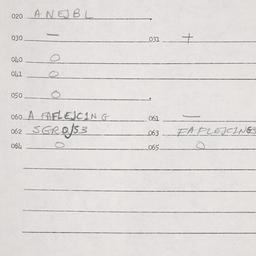 020 ANEJBL
030 — 031 +
040 O
041 O
050 O
060 A FAFLEJCING 061 —
062 SGRO/53 063 FAFLEJCINGS
064 O 065 O